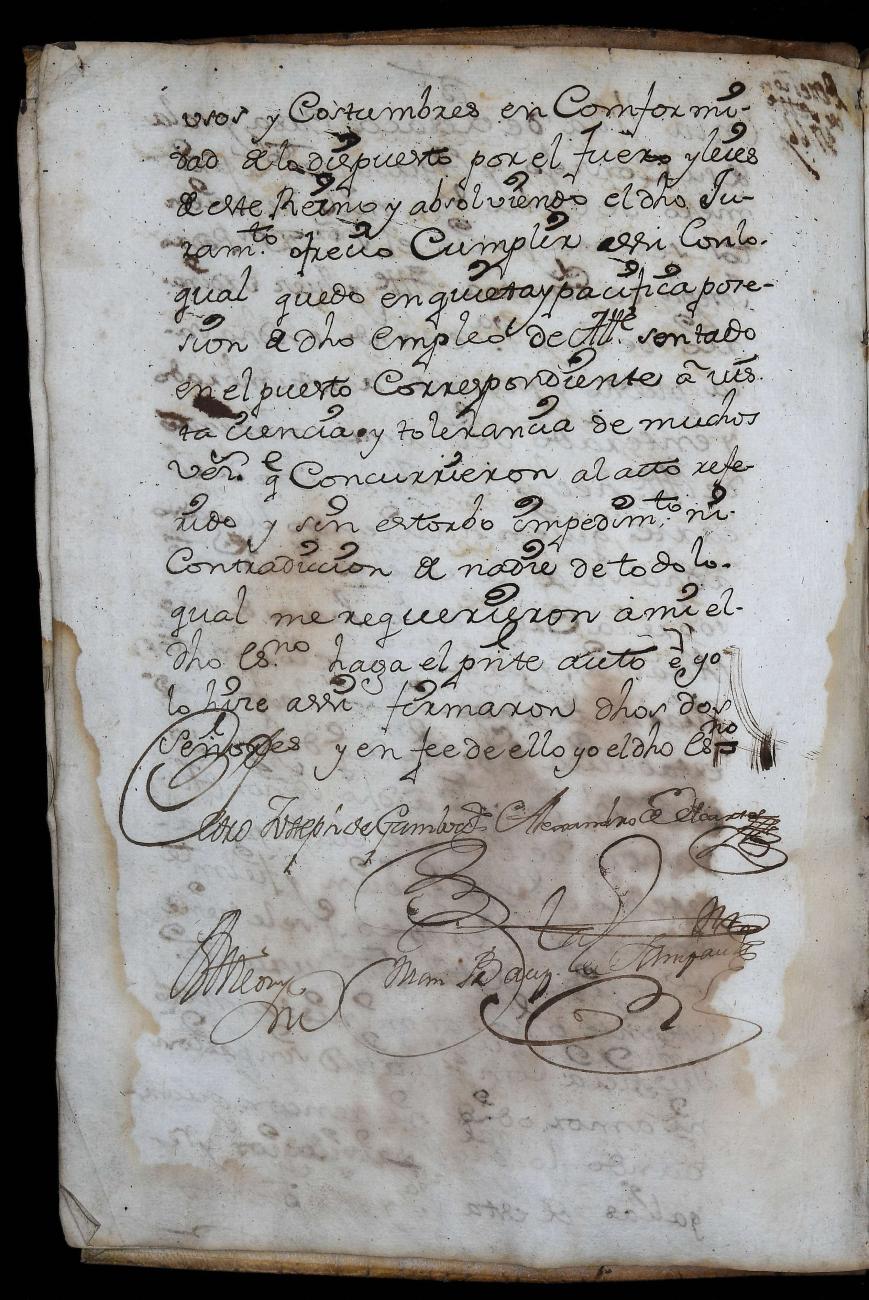 usos y Costumbres en Comformi-
dad de lo dispuesto por el fuero y leies
de este Reino y absolviendo el dho Ju-
ram.to ofrecio Cumplir assi Conlo-
qual quedo en quieta y pacifica pose-
sion de dho Empleo de All.e sentado
en el puesto Correspondiente a vis-
ta ciencia y tolerancia de muchos
vez.s q Concurrieron al acto refe-
rido y sin estorbo impedim.to ni-
Contradicion de nadie de todo lo-
qual me requerieron a mi el-
dho Es.no haga el pnte auto e yo
lo hize assi firmaron dhos dos
Señores y en fee de ello yo el dho Es.no
Pedro Joseph de Gamboa Alexandro de
Ante my
Juan Bap.ta